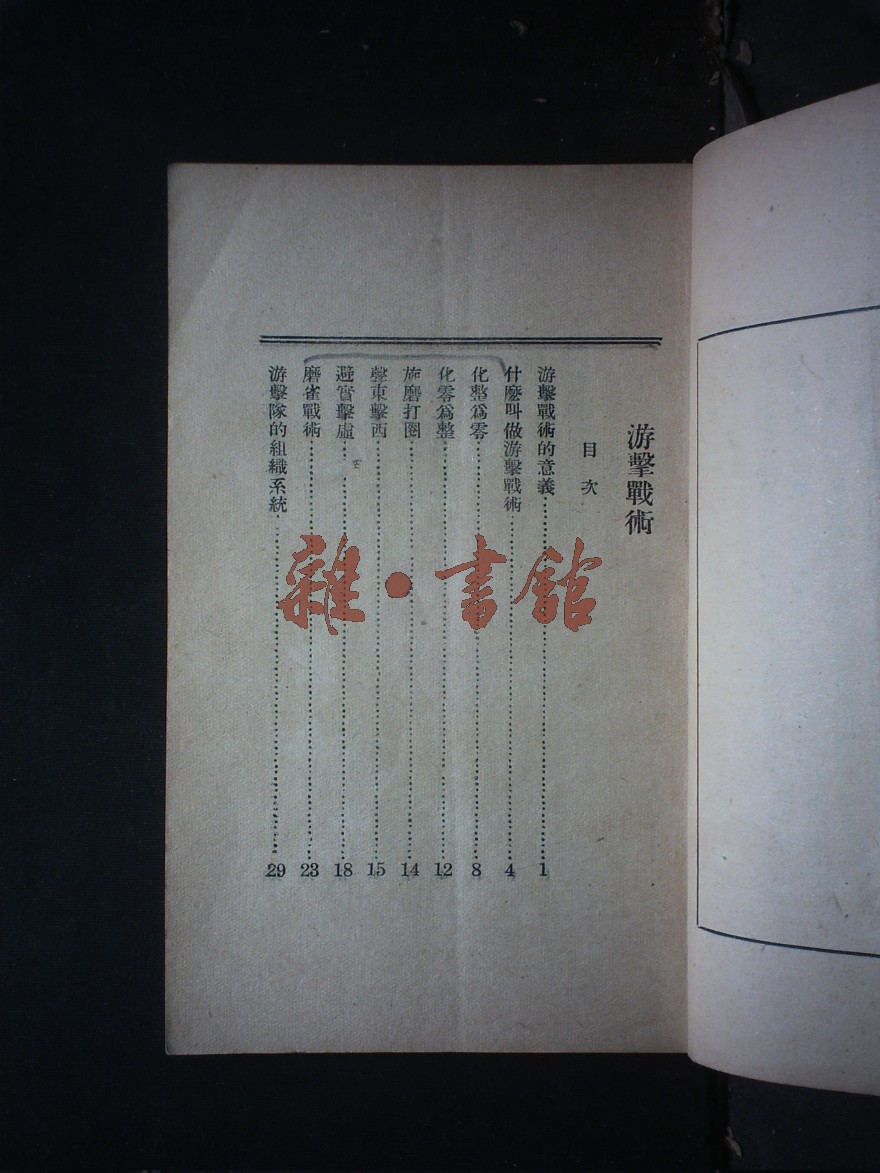 游擊戰術
目次
游擊戰術的意義…………1
什麼叫做游擊戰術…………4
化整爲零…………8
化零爲整…………12
旋磨打圈…………14
聲東擊西…………15
避實擊虛…………18
磨雀戰術…………23
游擊隊的組織系統…………29
雜·書館